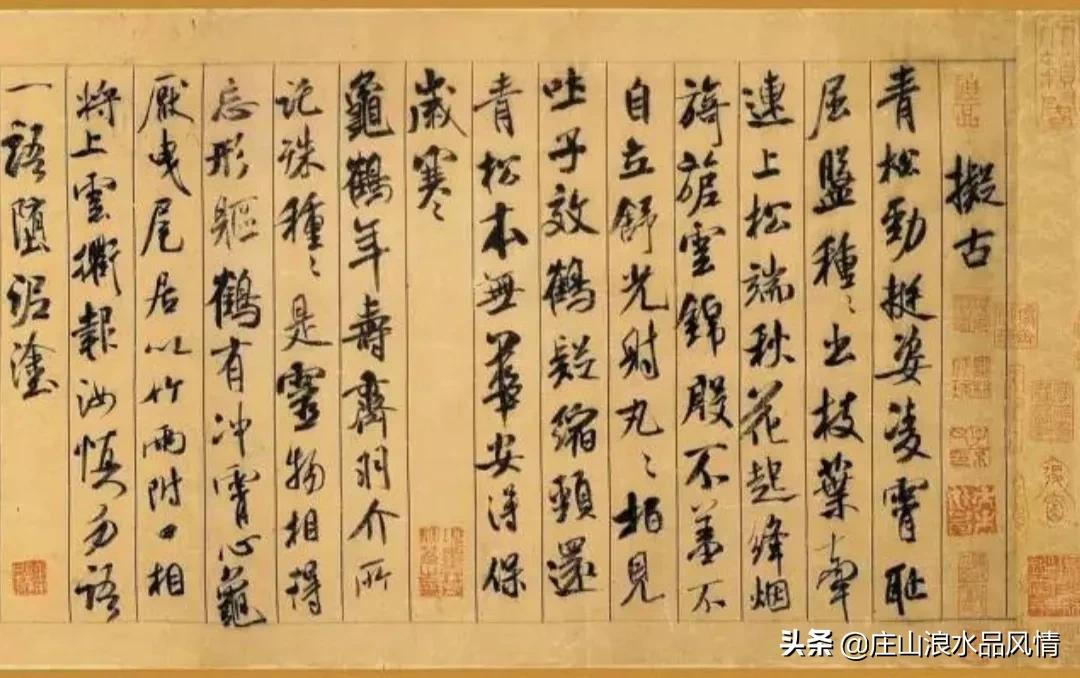 擬古
青松勁挺姿凌霄恥
屈盤種〻出枝葉牽
連上松端秋花起絳烟
旖旎雲錦殷不羞不
自立舒光射丸〻柏見
吐子效鶴疑縮頸還
青松本無華安得保
歲寒
龜鶴年壽齊羽介所
託殊種〻是靈物相得
忘形軀鶴有冲霄心龜
厭曳尾居以竹兩附口相
將上雲衢報汝慎勿語
一語墮泥塗
头条 @庄山浪水品风情